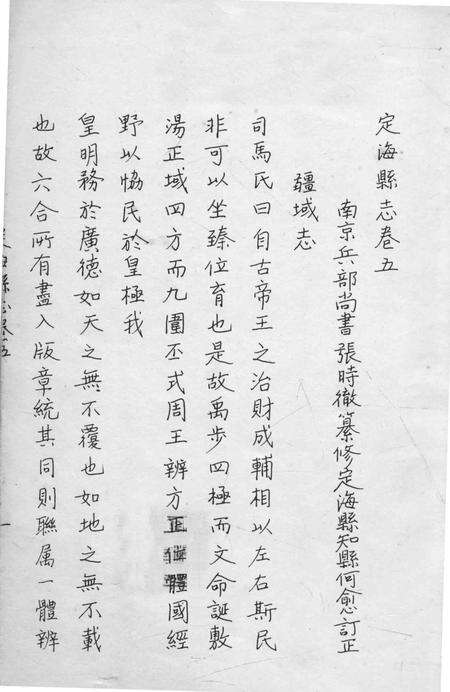 定海縣志卷五
南京兵部尚書張時徹纂修定海縣知縣何愈訂正
疆域志
司馬氏曰自古帝王之治財成輔相以左右斯民
非可以坐臻位育也是故禹步四極而文命誕敷
湯正域四方而九圍丕式周王辨方正體國經
野以恊民於皇極我
皇明務於廣德如天之無不覆也如地之無不載
也故六合所有盡入版章統其同則聯属一體辨
定海縣志卷五
一